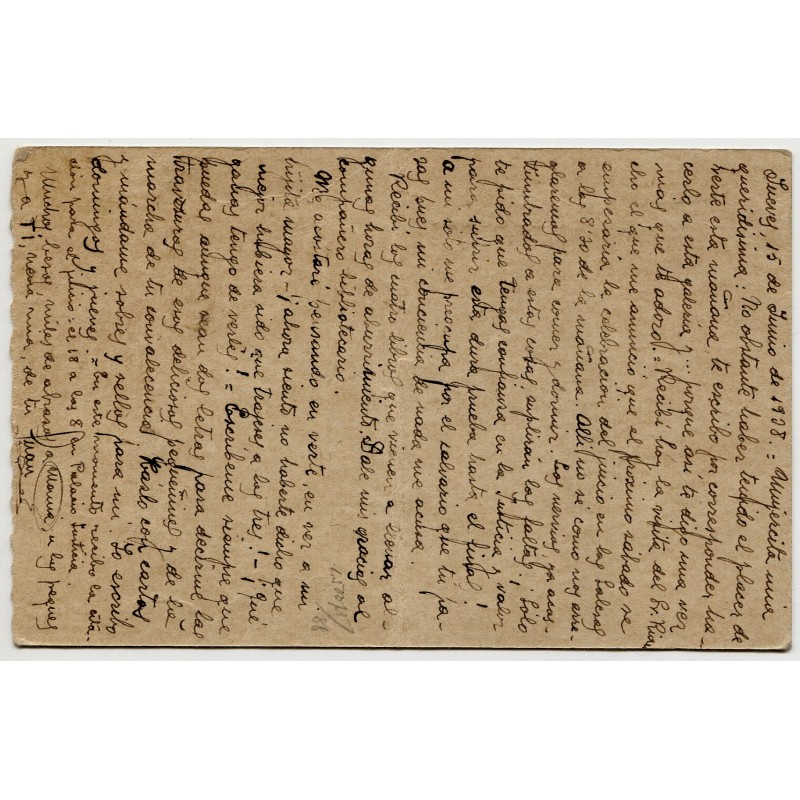 Jueves, 15 de Junio de 1938 = Mujercita mia
queridisima: No obstante haber tenido el placer de
verte esta mañana, te escribo por corresponder, ha-
cerlo a esta galeria y... porque asi te digo una vez
mas que te adoro = Recibi hoy la visita del Sr. Ruiz
en el que me anunció que el próximo sábado se
empezaria la celebracion del juicio en las Salesas
a las 8'30 de la mañana. Alli no se como nos arre-
glaremos para comer y dormir. Los nervios ya acos-
tumbrados a estas cosas suplirán las faltas ¡Sólo
te pido que tengas confianza en la Justicia y valor
para sufrir esta dura prueba hasta el final!
a mi sólo me preocupa por el calvario que tu pa-
sas pues mi conciencia de nada me acusa.
Recibi los cuatro libros que vienen a llenar al-
gunas horas de aburrimiento. Dale mis gracias al
compañero bibliotecario.
Me acostaré pensando en verte, en ver a mi
hijita mayor - ¡ahora siento no haberte dicho que
mejor hubiera sido que trajeses a las tres! - ¡Qué
ganas tengo de verles! = Escribeme siempre que
puedas aunque sean dos letras para decirme las
travesuras de esos deliciosos pequeñines y de la
marcha de tu convalecencia. Hazlo con cartas
y mándame sobres y sellos para mi. Yo escribo
domingos y jueves = En este momento recibo la cita-
cion para el juicio: el 18 a las 8 en Palacio Justicia.
Muchos besos, miles de abrazos a Mama, a los peques
y a Ti, nena mia, de tu
Juan